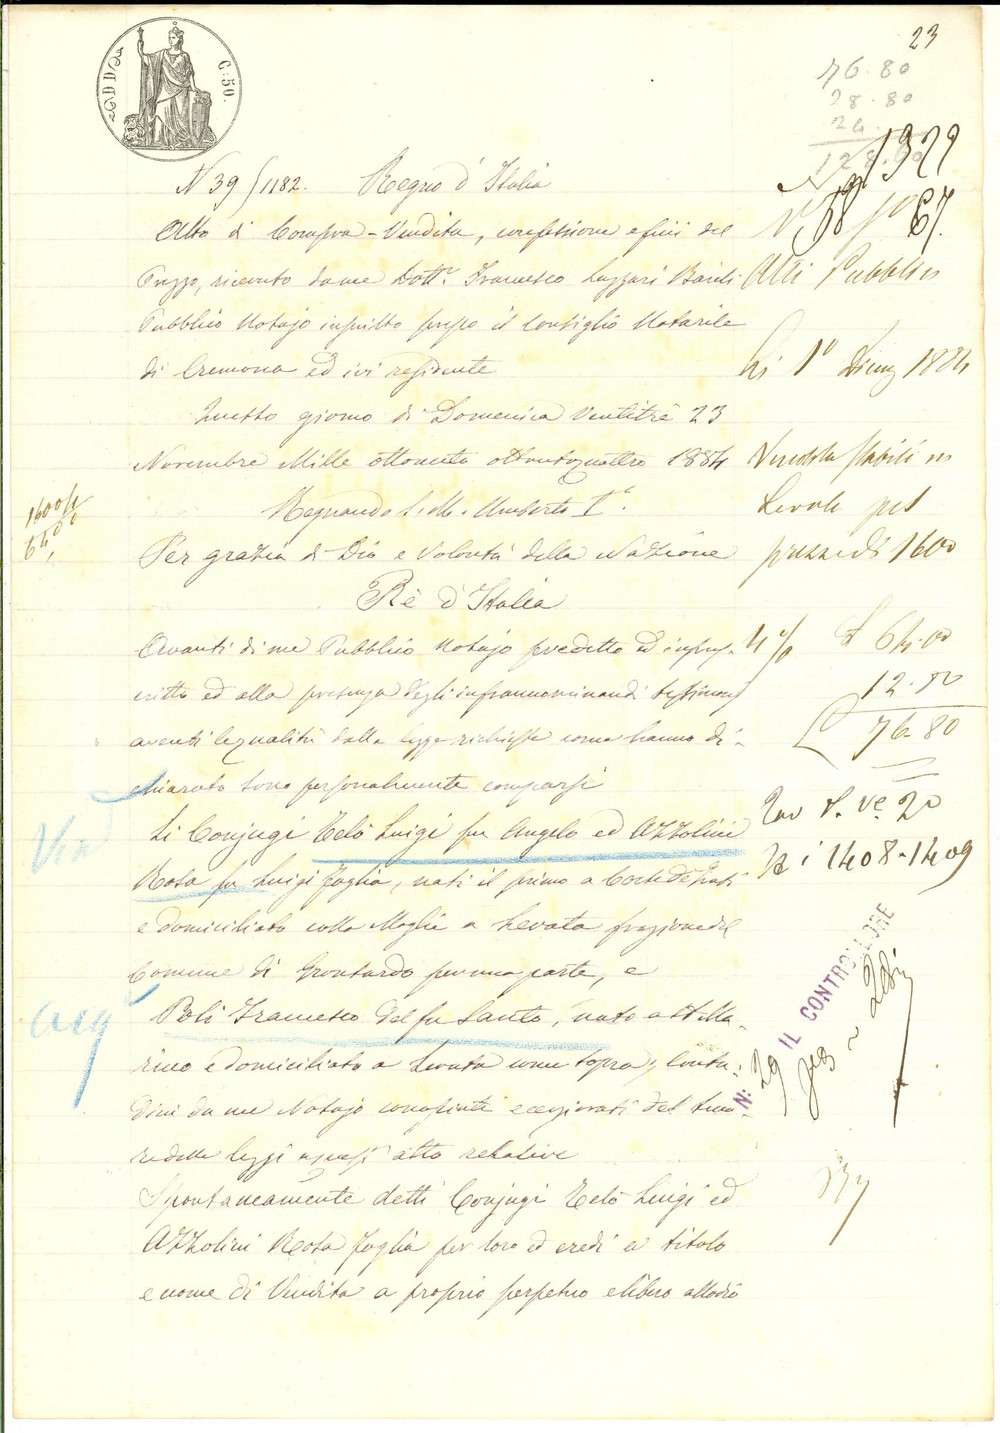 23
76.80
28.80
24
128.
C: 50.
N 39/1182. Regno d'Italia
N 1322
N 58 67.
Atto di Compra-Vendita, confessione e fini del
Prezzo, ricevuto da me Dott.r Francesco Lazzari
Pubblico Notajo inscritto presso il Consiglio Notarile
di Cremona ed ivi residente
Questo giorno di Domenica Ventitrè 23
Novembre Mille ottocento ottantaquattro 1884
Regnando S. M. Umberto I.°
Per grazia di Dio e Volontà della Nazione
Rè d'Italia
Avanti di me Pubblico Notajo predetto ed infras-
critto ed alla presenza degli infranominandi testimonj
aventi le qualità dalla legge richieste come hanno di-
chiarato sono personalmente comparsi
Li Conjugi Telò Luigi fu Angelo ed Azzolini
Rosa fu Luigi Foglia, nati il primo a Corte de' Frati
e domiciliato colla Moglie a Levata frazione del
Comune di Grontardo per una parte, e
Poli Francesco del fu Santo, nato a S. Ma-
rino e domiciliato a Levata come sopra,
dini da me Notajo conosciuti del teno-
re delle leggi a questi atto relative
Spontaneamente detti Conjugi Telò Luigi ed
Azzolini Rosa Foglia per loro ed eredi a titolo
e nome di Vendita a proprio perpetuo e libero allodio
1600
64
Vend
Acq
Atti Pubblici
Li 1° 1884
Vendita stabili in
Levata pel
prezzo di 1600
4 % £ 64.00
12.80
76.80
20
1408-1409
IL CONTROLLORE
N: 29